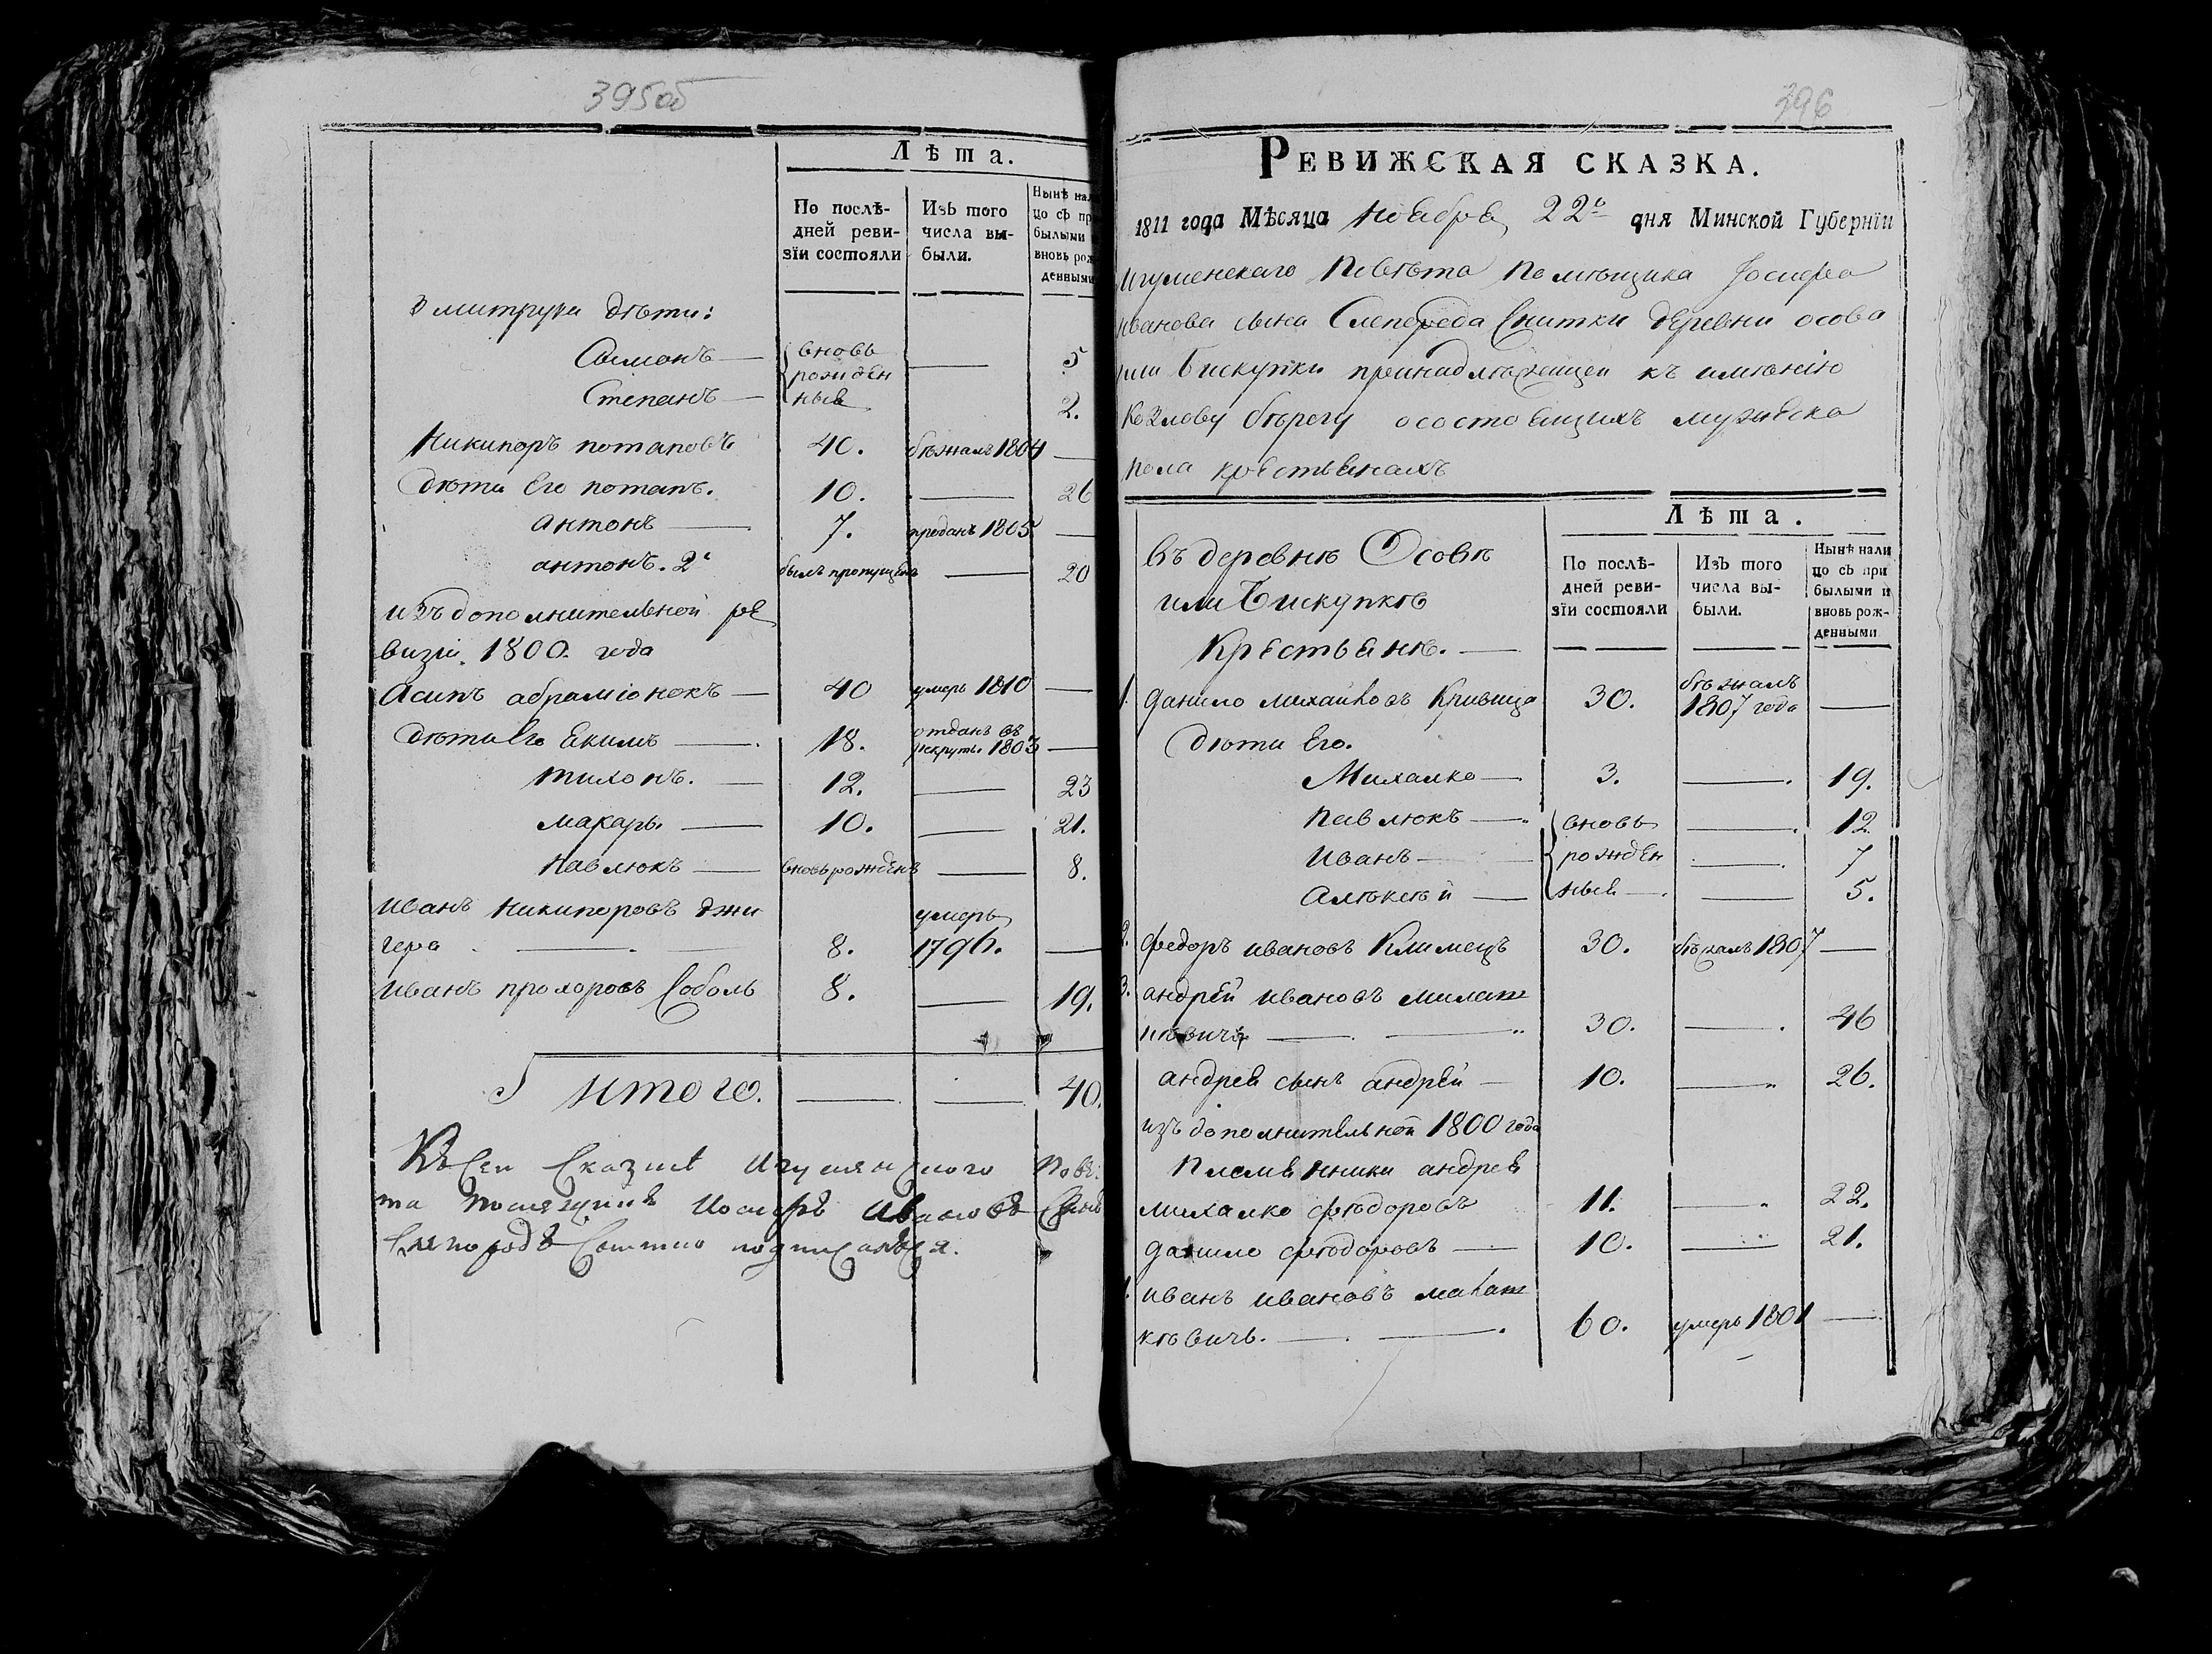 395об
Лѣта.
По послѣ-
дней реви-
зїи состояли
Изъ того
числа вы-
были.
Нынѣ на
цо съ пр
былыми
вновь рож
денными
Змитрука дѣти:
Сымонъ — вновь — 5
рожден
Степанъ — ные 2.
Никипоръ потаповъ 40. бѣжалъ 1804 —
дѣти Его потапъ. 10. — 26
антонъ — 7. преданъ 1805 —
антонъ. 2й былъ пропущенъ — 20
изъ дополнительной ре
визіи 1800. года
Асипъ абраміонокъ — 40 умеръ 1810 —
дѣти Его Екимъ — 18. отданъ въ
рекруты 1803 —
тихонъ. — 12. — 23
макаръ. — 10. — 21.
павлюкъ — вновьрожденъ — 8.
иванъ никипоровъ джи умеръ
гера — 8. 1796. —
иванъ прохоровъ Соболь 8. — 19.
итого. — — 40.
Къ Сей Сказке Игуменского Пове
та помещикъ Иосифъ Ивановъ Сынъ
подписался.
396
Ревижская сказка.
1811 года Мѣсяца ноебре 22го дня Минской Губернїи
Игуменскаго повѣта помѣщика Іосифа
иванова сына Слепереда Снитки деревни осова
или Бискупки принадлежащей къ имѣнію
Козлову берегу осостоещихъ мужеска
пола крестьенахъ
въ деревнѣ Осовѣ
или Бискупкѣ
Крестьенѣ. —
Лѣта.
По послѣ-
дней реви-
зїи состояли
Изъ того
числа вы-
были.
Нынѣ нали
цо съ при
былыми и
вновь рож-
денными
1. данило михайловъ Кривица 30. бѣжалъ
1807 года —
дѣти Его.
Михалко — 3. — 19.
павлюкъ — вновь — 12
иванъ — рожден — 7
Алѣксѣй — ные — 5.
2. федоръ ивановъ Климецъ 30. бѣжалъ 1807 —
3. андрей ивановъ милаш
нѣвичъ — 30. — 46
андрея сынъ андрей — 10. — 26.
изъ дополнительной 1800 года
племенники андрея
михалко фѣдоровъ 11. — 22.
данило фѣдоровъ — 10. — 21.
иванъ ивановъ малаш
кѣвичъ. — 60. умеръ 1801 —